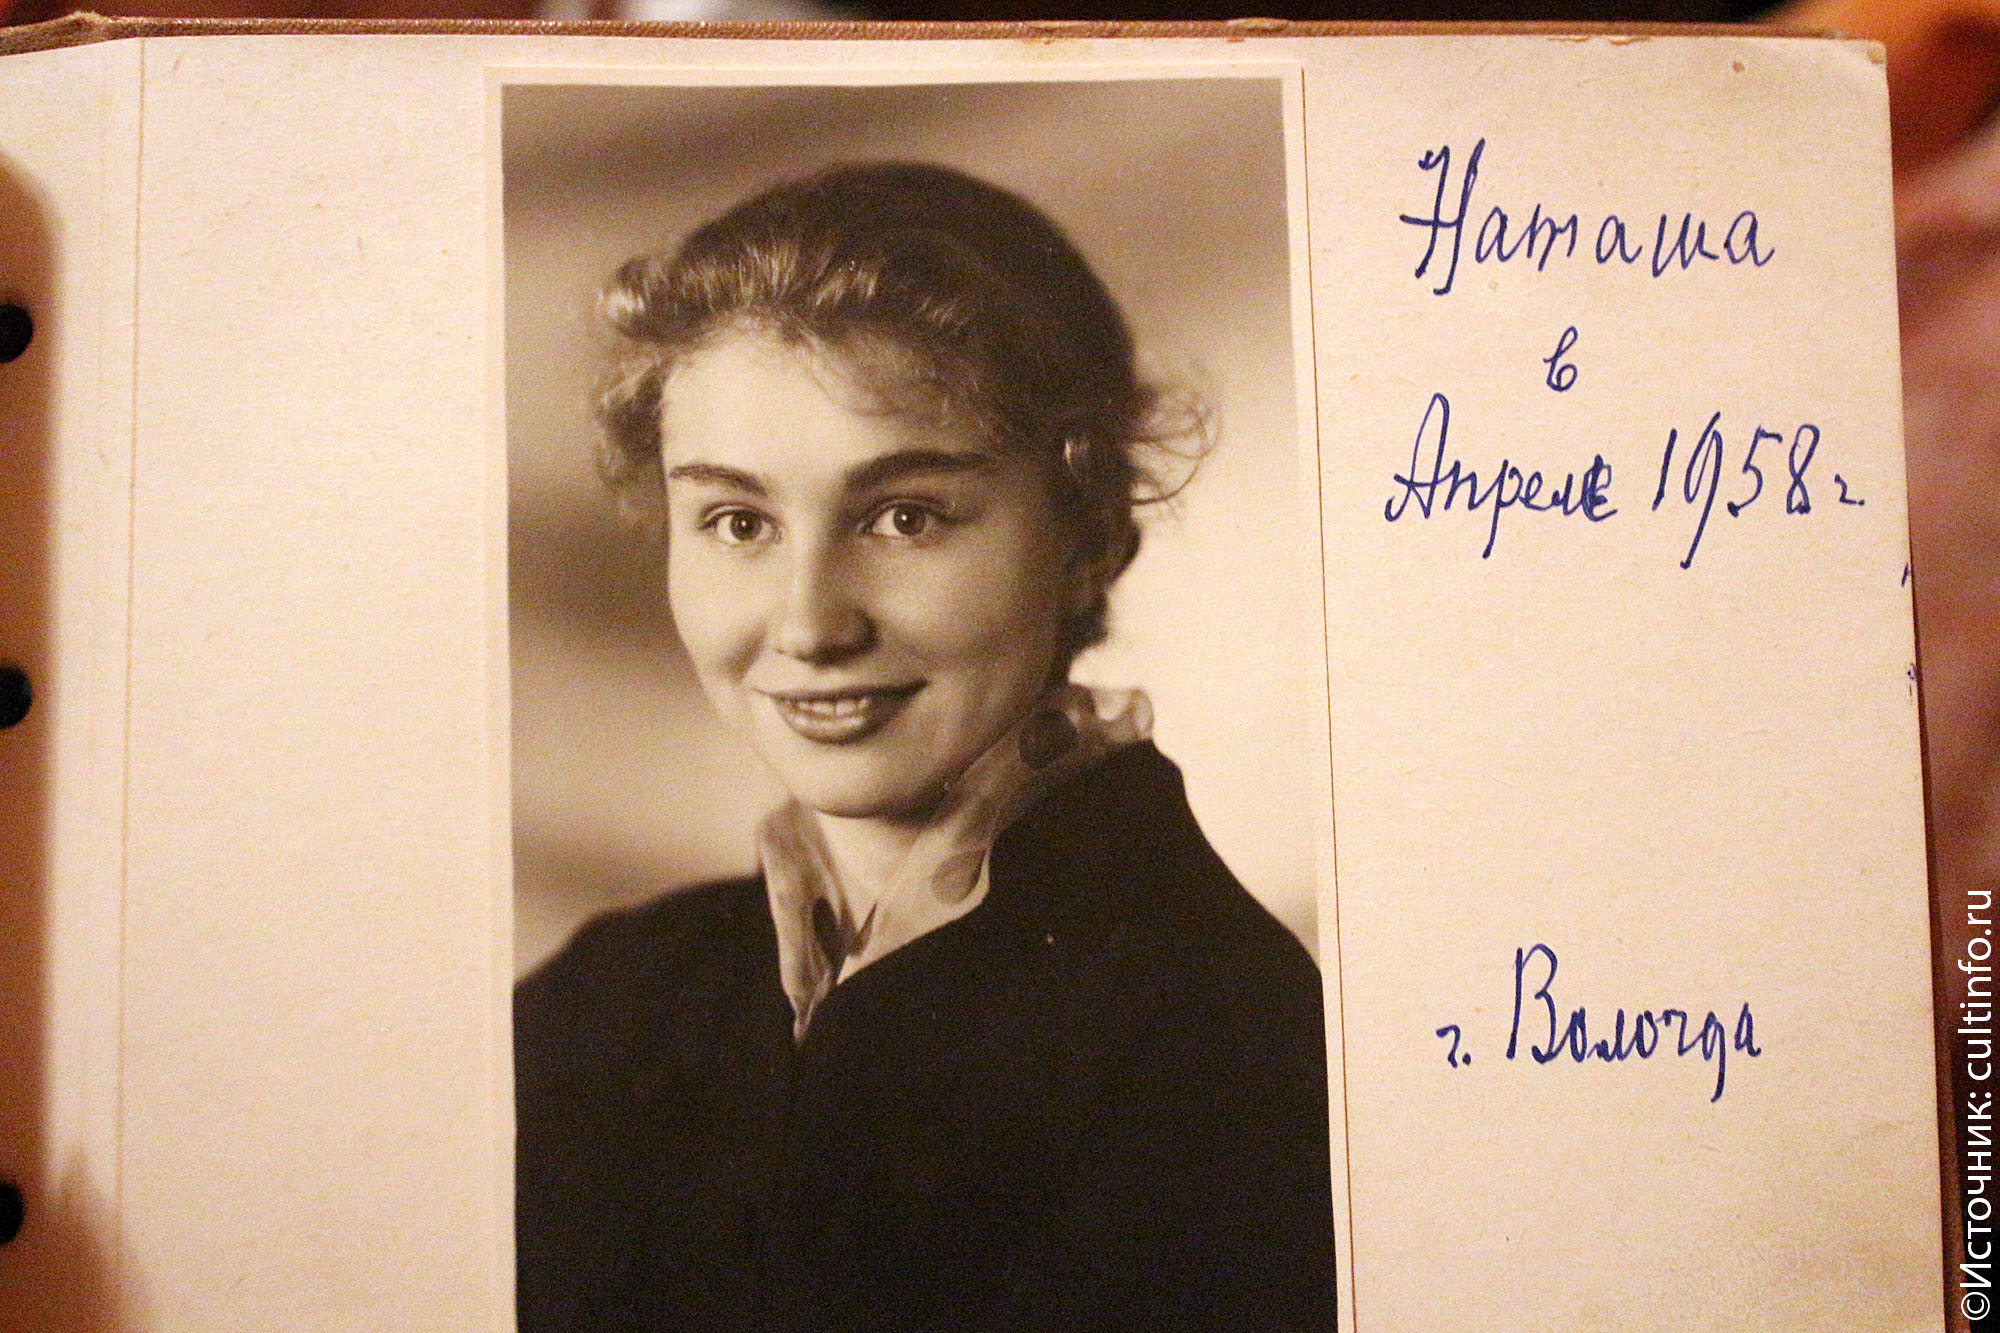 Наташа
в
Апреле 1958 г.
г. Вологда
©Источник: cultinfo.ru